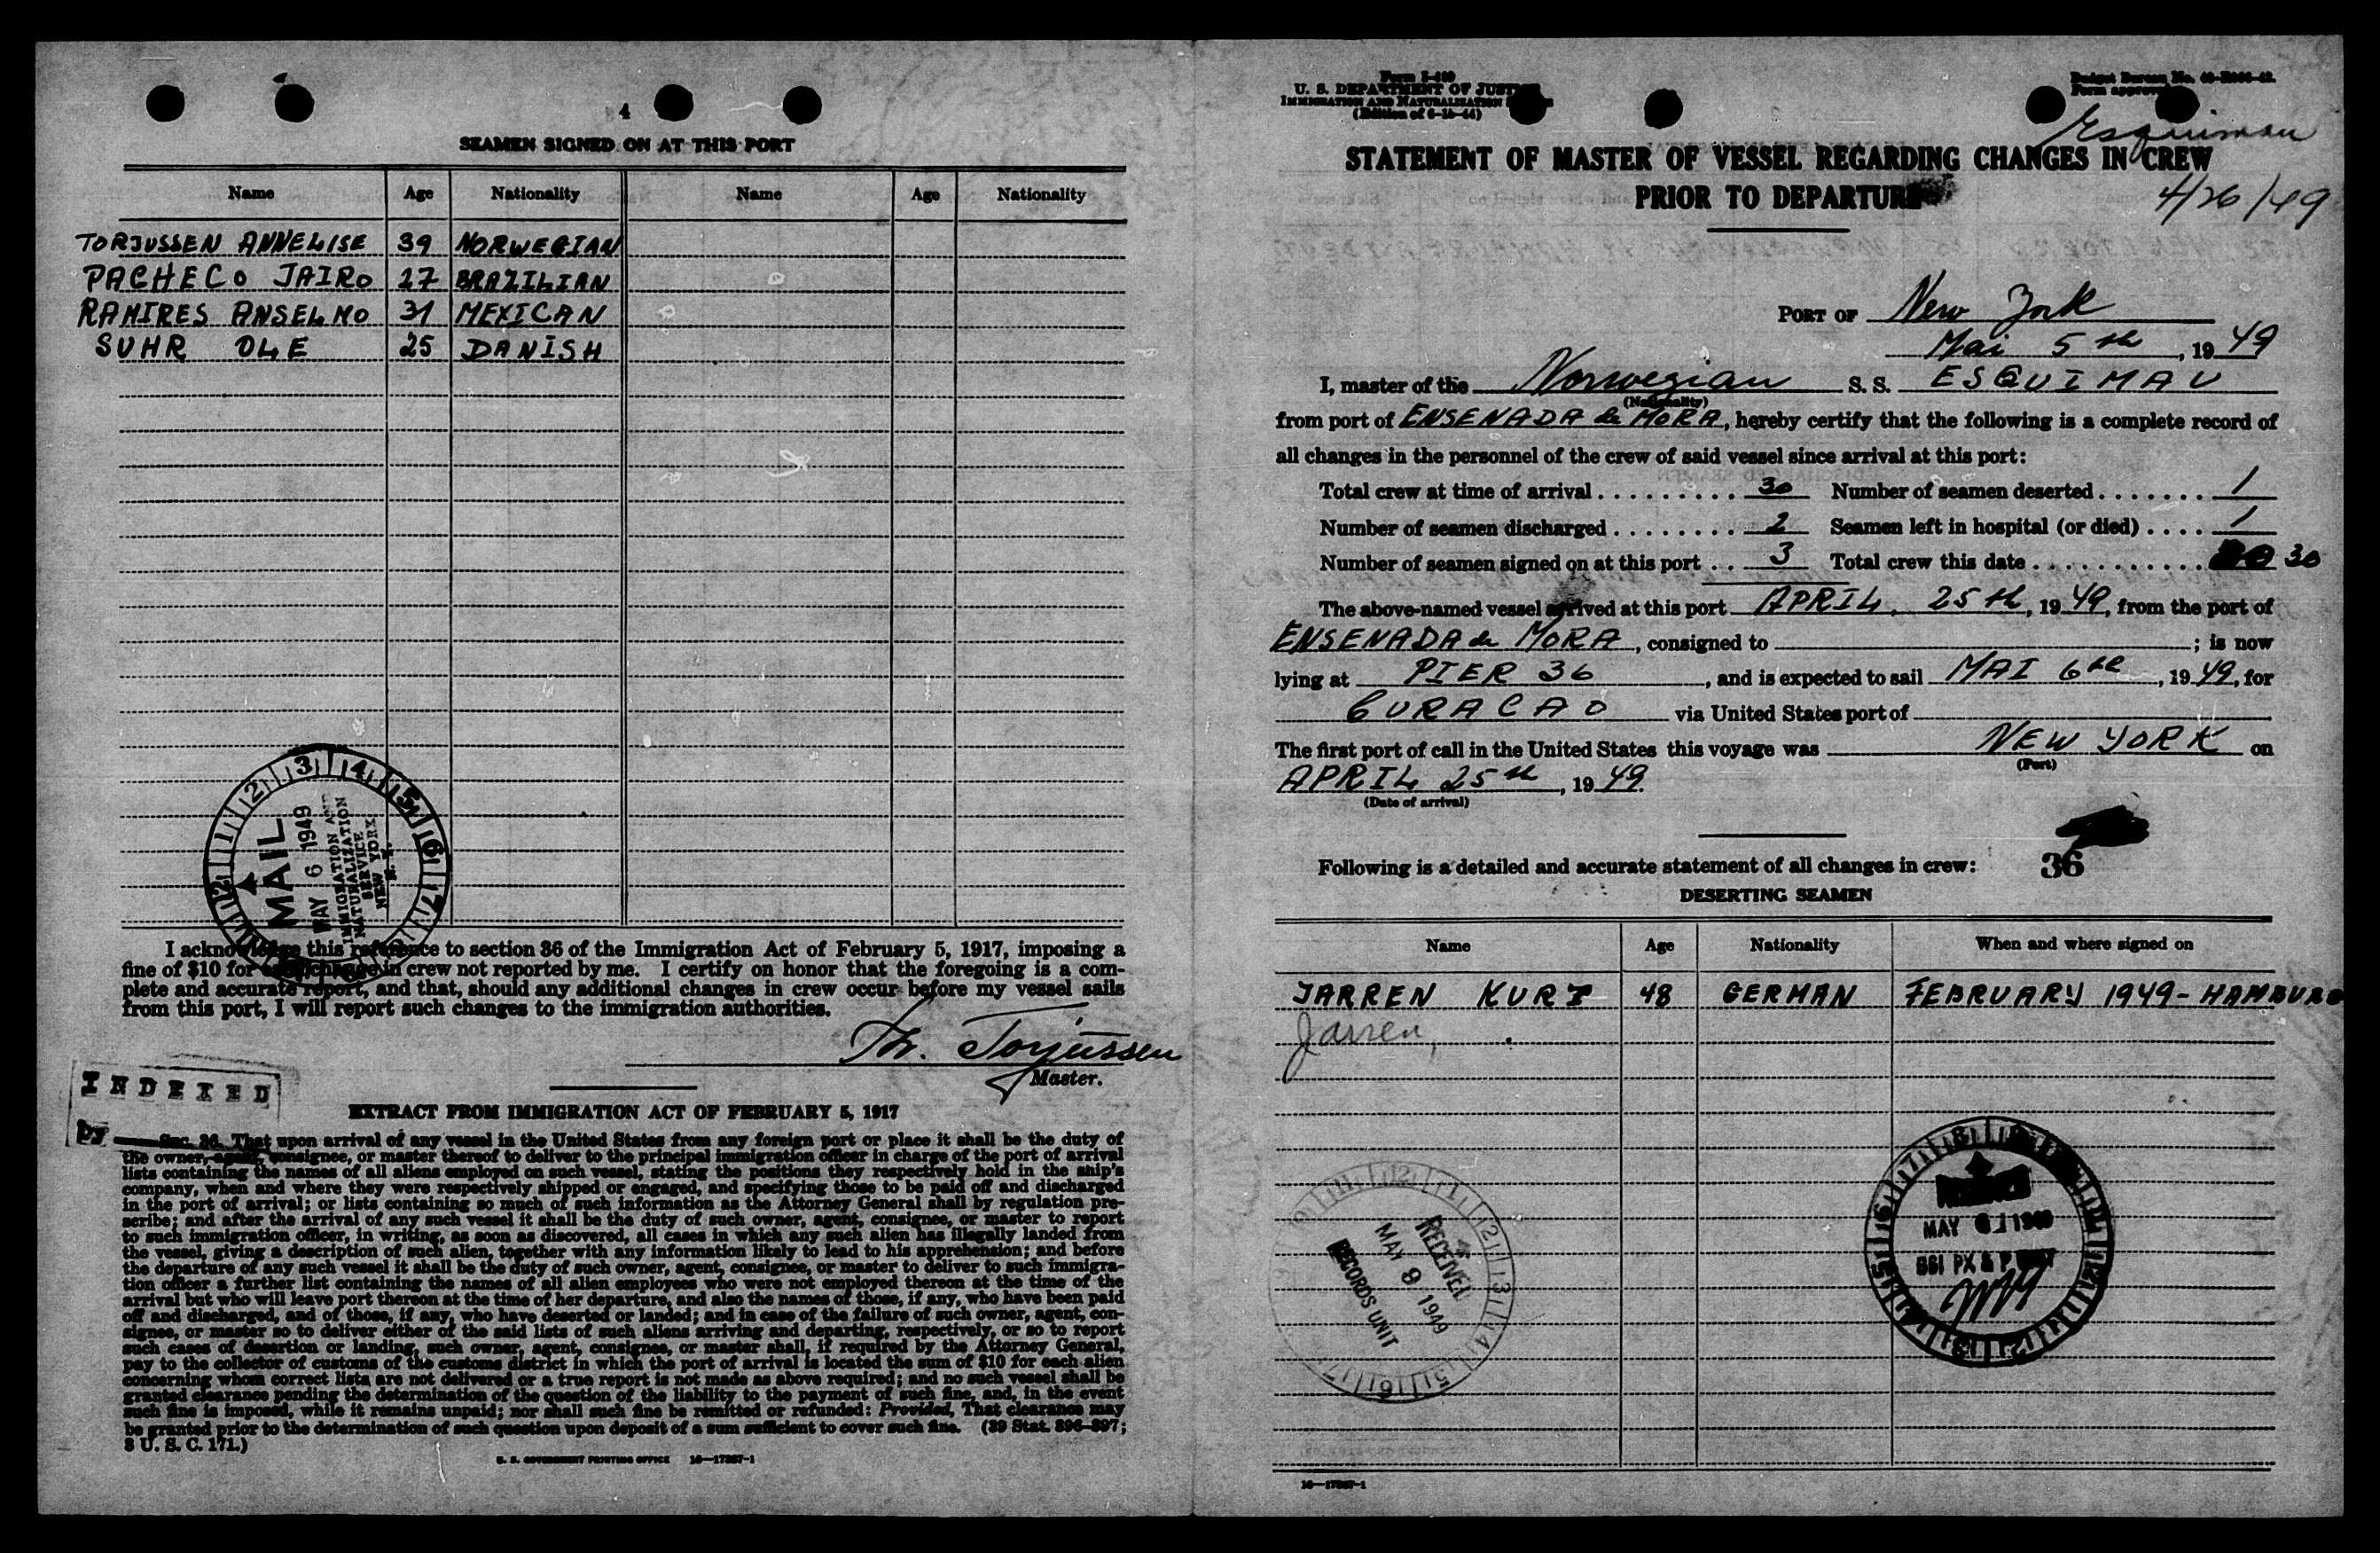 4
SEAMEN SIGNED ON AT THIS PORT
Name Age Nationality Name Age Nationality
TORJUSSEN ANNELISE 39 NORWEGIAN
PACHECO JAIRO 27 BRAZILIAN
RAMIRES ANSELMO 31 MEXICAN
SUHR OLE 25 DANISH
MAIL
MAY 6 1949
IMMIGRATION AND
NATURALIZATION
SERVICE
NEW YORK
N. Y.
I acknowledge this reference to section 36 of the Immigration Act of February 5, 1917, imposing a
fine of $10 for each change in crew not reported by me. I certify on honor that the foregoing is a com-
plete and accurate report, and that, should any additional changes in crew occur before my vessel sails
from this port, I will report such changes to the immigration authorities.
Th. Torjussen
Master.
INDEXED
BY
EXTRACT FROM IMMIGRATION ACT OF FEBRUARY 5, 1917
Sec. 36. That upon arrival of any vessel in the United States from any foreign port or place it shall be the duty of
the owner, agent, consignee, or master thereof to deliver to the principal immigration officer in charge of the port of arrival
lists containing the names of all aliens employed on such vessel, stating the positions they respectively hold in the ship's
company, when and where they were respectively shipped or engaged, and specifying those to be paid off and discharged
in the port of arrival; or lists containing so much of such information as the Attorney General shall by regulation pre-
scribe; and after the arrival of any such vessel it shall be the duty of such owner, agent, consignee, or master to report
to such immigration officer, in writing, as soon as discovered, all cases in which any such alien has illegally landed from
the vessel, giving a description of such alien, together with any information likely to lead to his apprehension; and before
the departure of any such vessel it shall be the duty of such owner, agent, consignee, or master to deliver to such immigra-
tion officer a further list containing the names of all alien employees who were not employed thereon at the time of the
arrival but who will leave port thereon at the time of her departure, and also the names of those, if any, who have been paid
off and discharged, and of those, if any, who have deserted or landed; and in case of the failure of such owner, agent, con-
signee, or master so to deliver either of the said lists of such aliens arriving and departing, respectively, or so to report
such cases of desertion or landing, such owner, agent, consignee, or master shall, if required by the Attorney General,
pay to the collector of customs of the customs district in which the port of arrival is located the sum of $10 for each alien
concerning whom correct lists are not delivered or a true report is not made as above required; and no such vessel shall be
granted clearance pending the determination of the question of the liability to the payment of such fine, and, in the event
such fine is imposed, while it remains unpaid; nor shall such fine be remitted or refunded: Provided, That clearance may
be granted prior to the determination of such question upon deposit of a sum sufficient to cover such fine. (39 Stat. 896-897;
8 U. S. C. 171.)
U. S. GOVERNMENT PRINTING OFFICE 16—17287-1
U. S. DEPARTMENT OF JUSTICE
IMMIGRATION AND NATURALIZATION
(Edition of 6-15-44)
Esquimau
STATEMENT OF MASTER OF VESSEL REGARDING CHANGES IN CREW
PRIOR TO DEPARTURE
4/26/49
PORT OF New York
Mai 5th, 1949
I, master of the Norwegian S. S. ESQUIMAU
(Nationality)
from port of ENSENADA de MORA, hereby certify that the following is a complete record of
all changes in the personnel of the crew of said vessel since arrival at this port:
Total crew at time of arrival 30 Number of seamen deserted 1
Number of seamen discharged 2 Seamen left in hospital (or died) 1
Number of seamen signed on at this port 3 Total crew this date 30
The above-named vessel arrived at this port APRIL, 25th, 1949, from the port of
ENSENADA de MORA, consigned to ; is now
lying at PIER 36, and is expected to sail MAI 6th, 1949, for
CURACAO via United States port of
The first port of call in the United States this voyage was NEW YORK on
(Port)
APRIL 25th, 1949
(Date of arrival)
Following is a detailed and accurate statement of all changes in crew: 36
DESERTING SEAMEN
Name Age Nationality When and where signed on
JARREN KURT 48 GERMAN FEBRUARY 1949 - HAMBURG
Jarren,
RECEIVED
MAY 9 1949
RECORDS UNIT
MAY
16—17287-1